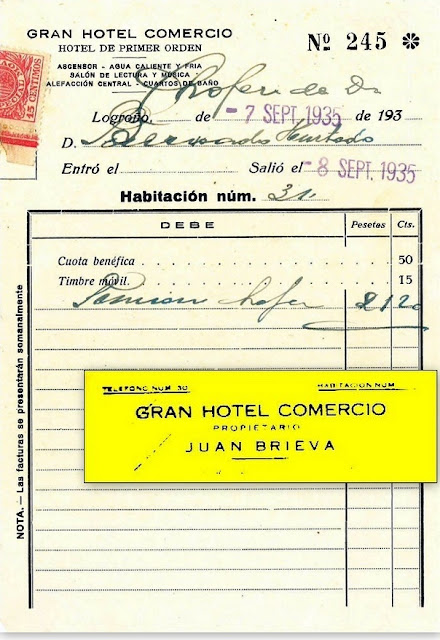 GRAN HOTEL COMERCIO
HOTEL DE PRIMER ORDEN
ASCENSOR - AGUA CALIENTE Y FRIA
SALÓN DE LECTURA Y MÚSICA
CALEFACCIÓN CENTRAL - CUARTOS DE BAÑO
Nº 245
15 CENTIMOS
Chofer de Dn
Logroño, de - 7 SEPT. 1935 de 193
D. Bernardo Hurtado
Entró el Salió el - 8 SEPT. 1935
Habitación núm. 31
DEBE Pesetas Cts.
Cuota benéfica 50
Timbre móvil. 15
Pension chofer
NOTA. — Las facturas se presentarán semanalmente
TELEFONO NUM 30 HABITACION NUM
GRAN HOTEL COMERCIO
PROPIETARIO
JUAN BRIEVA